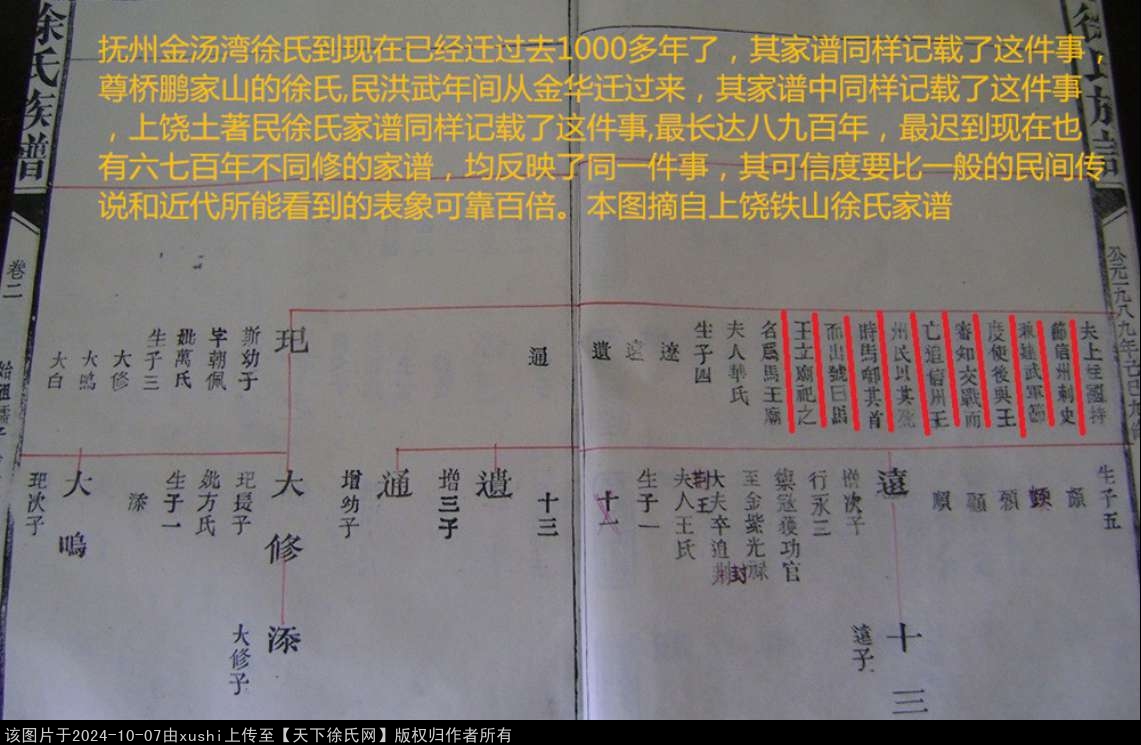 抚州金汤湾徐氏到现在已经迁过去1000多年了，其家谱同样记载了这件事，
尊桥鹏家山的徐氏,民洪武年间从金华迁过来，其家谱中同样记载了这件事
，上饶土著民徐氏家谱同样记载了这件事,最长达八九百年，最迟到现在也
有六七百年不同修的家谱，均反映了同一件事，其可信度要比一般的民间传
说和近代所能看到的表象可靠百倍。本图摘自上饶铁山徐氏家谱
夫上柱國持
節信州刺史
兼建武軍節
度使後與王
審知交戰而
亡追信州王
州民以其死
時馬啣其首
而出號曰馬
王立廟祀之
名爲馬王廟
夫人華氏
生子四
遼
遠
遺
通
玘
斯幼子
字朝佩
妣萬氏
生子三
大修
大鳴
大白
生子五
顏
頗
頟
顯
順
遠
增次子
行永三
禦寇獲功官
至金紫光祿
大夫卒追封
荆王
夫人王氏
生子一
十三
遺
增三子
通
增幼子
大修
玘長子
妣方氏
生子一
添
大鳴
玘次子
十三
遠子
添
大修子
徐氏族譜
卷二
徐氏族譜
该图片于2024-10-07由xushi上传至【天下徐氏网】版权归作者所有